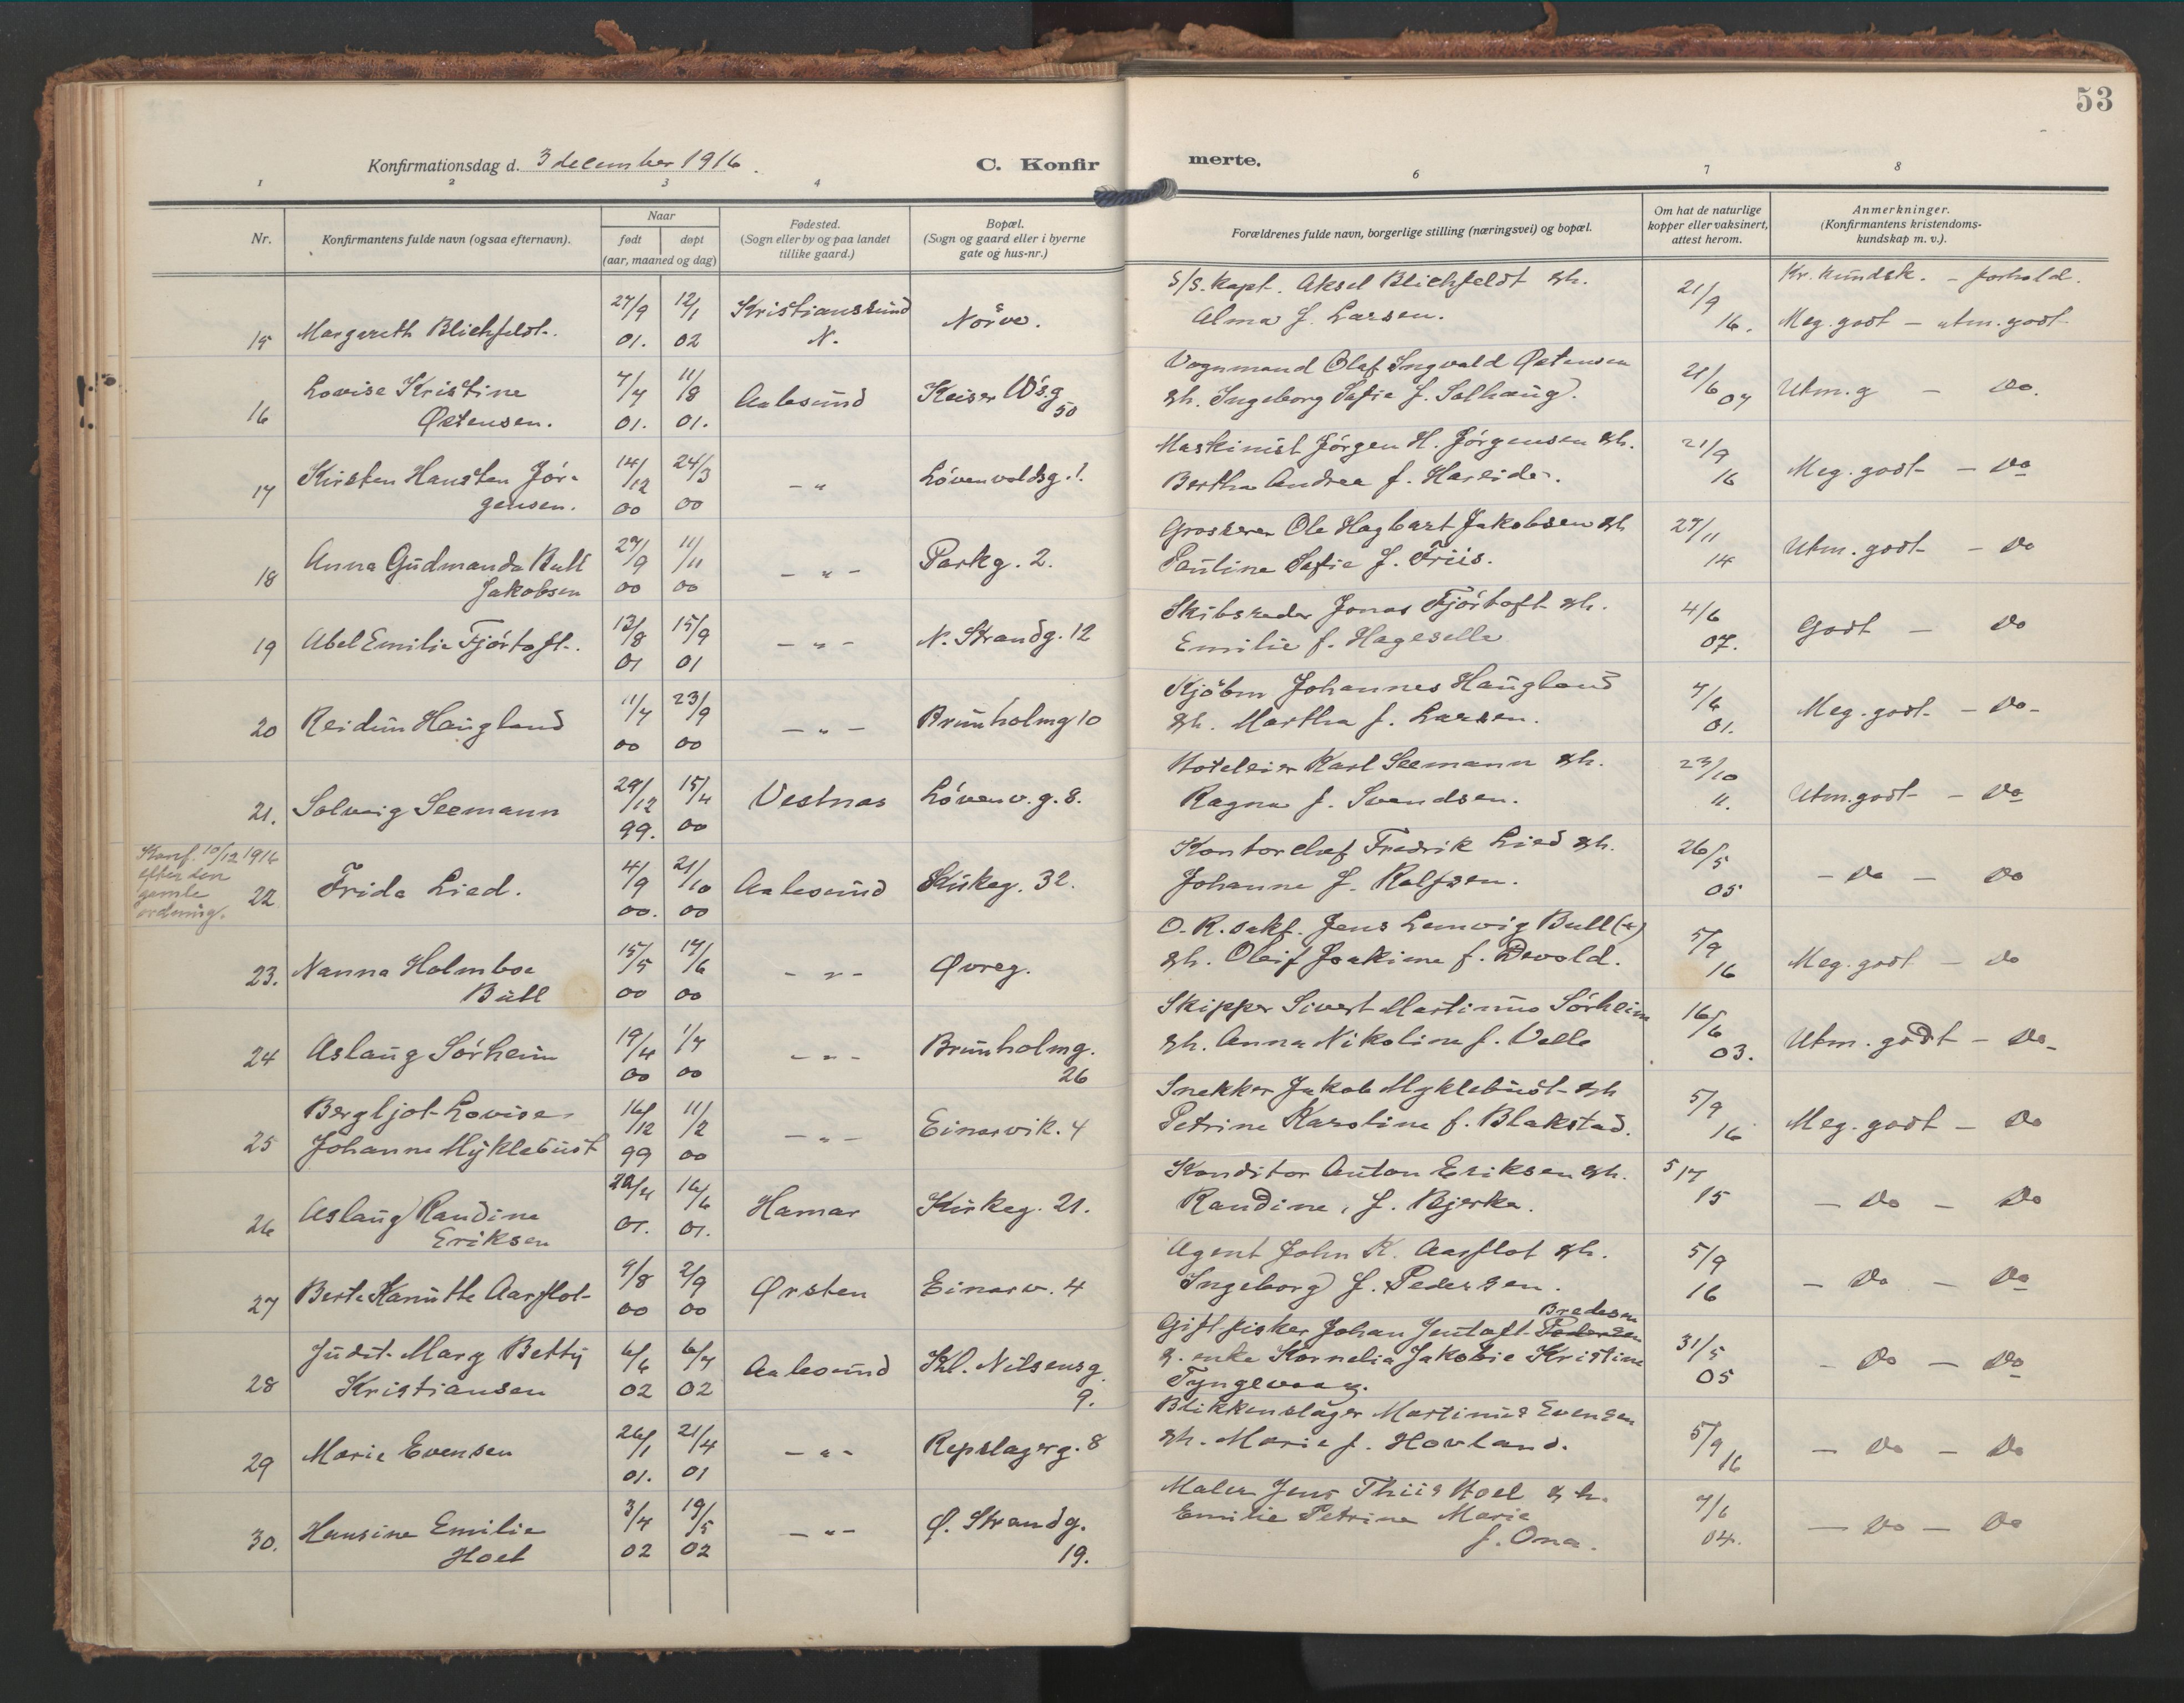 53
Konfirmationsdag d. 3 december 1916.
C. Konfirmerte.
1 2 3 4 6 7 8
Nr.
Konfirmantens fulde navn (ogsaa efternavn).
Naar
født døpt
(aar, maaned og dag)
Fødested.
(Sogn eller by og paa landet
tillike gaard.)
Bopæl.
(Sogn og gaard eller i byerne
gate og hus-nr.)
Forældrenes fulde navn, borgerlige stilling (næringsvei) og bopæl.
Om hat de naturlige
kopper eller vaksinert,
attest herom.
Anmerkninger.
(Konfirmantens kristendoms-
kundskap m. v.).
Kr. kundsk. - forhold.
15 Margareth Blichfeldt. 27/9 01. 12/1 02 Kristianssund N. Nörve.
S/S. kapt. Aksel Blichfeldt &h.
Alma f. Larsen.
21/9 16. Meg. godt - utm. godt.
16 Lovise Kristine
Østensen. 7/7 01. 11/8 01. Aalesund Keiser W's.g 50
Vognmand Olaf Ingvald Østensen
&h. Ingeborg Sofie f. Solhaug.
21/6 07 Utm. g - Do.
17 Kirsten Hansten Jör-
gensen. 14/12 00 24/3 00 - " Lövenvoldsg. 1.
Maskinist Jörgen H. Jörgensen &h.
Bertha Andrea f. Hareide.
21/9 16 Meg. godt - Do
18 Anna Gudmanda Bull
Jakobsen 27/9 00 11/11 00 - " - Parkg. 2.
Grosserer Ole Hagbart Jakobsen &h
Pauline Sofie f. Friis.
27/11 14 Utm. godt - Do
19 Abel Emilie Fjörtoft. 13/8 01 15/9 01 - " - N. Strandg. 12
Skibsreder Jonas Fjörtoft &h.
Emilie f. Hageselle
4/6 07. Godt - Do
20 Reidun Haugland 11/7 00 23/9 00 - " - Brunholmg 10
Kjöbm Johannes Haugland
&h. Martha f. Larsen.
7/6 01. Meg. godt - Do -
21. Solveig Seemann 29/12 99. 15/4 00 Vestnas Lövenv. g. 8.
Hoteleier Karl Seemann &h.
Ragna f. Svendsen.
23/10 11. Utm. godt - Do
Konf. 10/12 1916
efter den
gamle
ordning.
22 Frida Lied. 4/9 00. 21/10 00 Aalesund Kirkeg. 32.
Kontorchef Fredrik Lied &h.
Johanne f. Rolfsen.
26/5 05 - Do - Do
23. Nanna Holmboe
Bull 15/5 00 17/6 00 - " - Øvreg.
O. R. sakf. Jens Lemvig Bull (+)
&h. Oleif Joakime f. Devold.
5/9 16 Meg. godt - Do
24 Aslaug Sörheim 19/4 00 1/7 00 - " - Brunholmg. 26
Skipper Sivert Martinus Sörheim
&h. Anna Nikoline f. Velle
16/6 03. Utm. godt - Do -
25 Bergljot Lovise
Johanne Myklebust 16/12 99 11/2 00 - " - Einarvik. 4
Snekker Jakob Myklebust &h
Petrine Karoline f. Blakstad.
5/9 16 Meg. godt - Do
26 Aslaug Randine
Eriksen 22/4 01. 16/6 01. Hamar Kirkeg. 21.
Konditor Anton Eriksen &h.
Randine, f. Bjerke.
5/7 15 - Do - Do
27 Berte Kanutte Aarflot 9/8 00 2/9 00 Ørsten Einarv. 4
Agent John K. Aarflot &h.
Ingeborg f. Pedersen.
5/9 16 - Do - Do
28 Judit Mary Betty
Kristiansen 6/6 02 6/7 02 Aalesund Kl. Nilsensg 9.
Bredesen
Gift fisker Johan Jentoft Pedersen
g. enke Kornelia Jakobie Kristine
Tyngevaag.
31/5 05 - Do - Do
29 Marie Evensen 26/1 01. 21/4 01 - " - Repslagerg. 8
Blikkenslager Martinus Evensen
&h. Marie f. Hovland.
5/9 16 - Do - Do
30. Hansine Emilie
Hoel 3/4 02 19/5 02 - " - Ø. Strandg. 19.
Maler Jens Thiis Hoel &h.
Emilie Petrine Marie
f. Ona.
7/6 04. - Do - Do